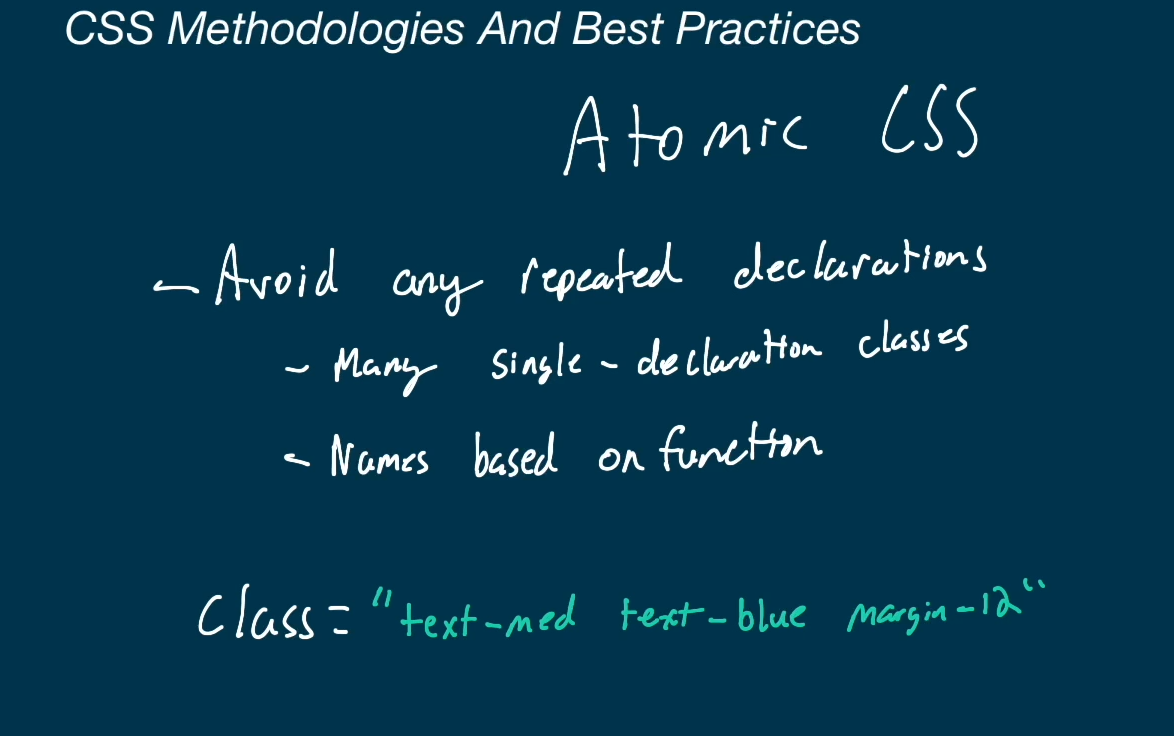 CSS Methodologies And Best Practices
Atomic CSS
- Avoid any repeated declarations
- Many single-declaration classes
- Names based on function
Class = "text-med text-blue margin-12"